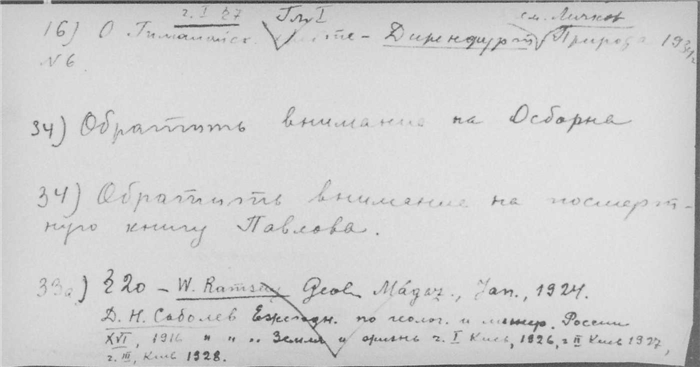 ч. I §7 Гл. I см. Личков
16) О Гималайск. – Диренфурт Природа 1931 г.
№6
34) Обратить внимание на Осборна
34) Обратить внимание на посмерт-
ную книгу Павлова.
33а) § 20 – W. Ramsay Geol. Magaz., Jan., 1924.
Д. Н. Соболев Ежегодн. по геолог. и минер. России
XVI, 1916 " " " Земля и жизнь ч. I Киев, 1926, ч II Киев 1927,
ч. III, Киев 1928.